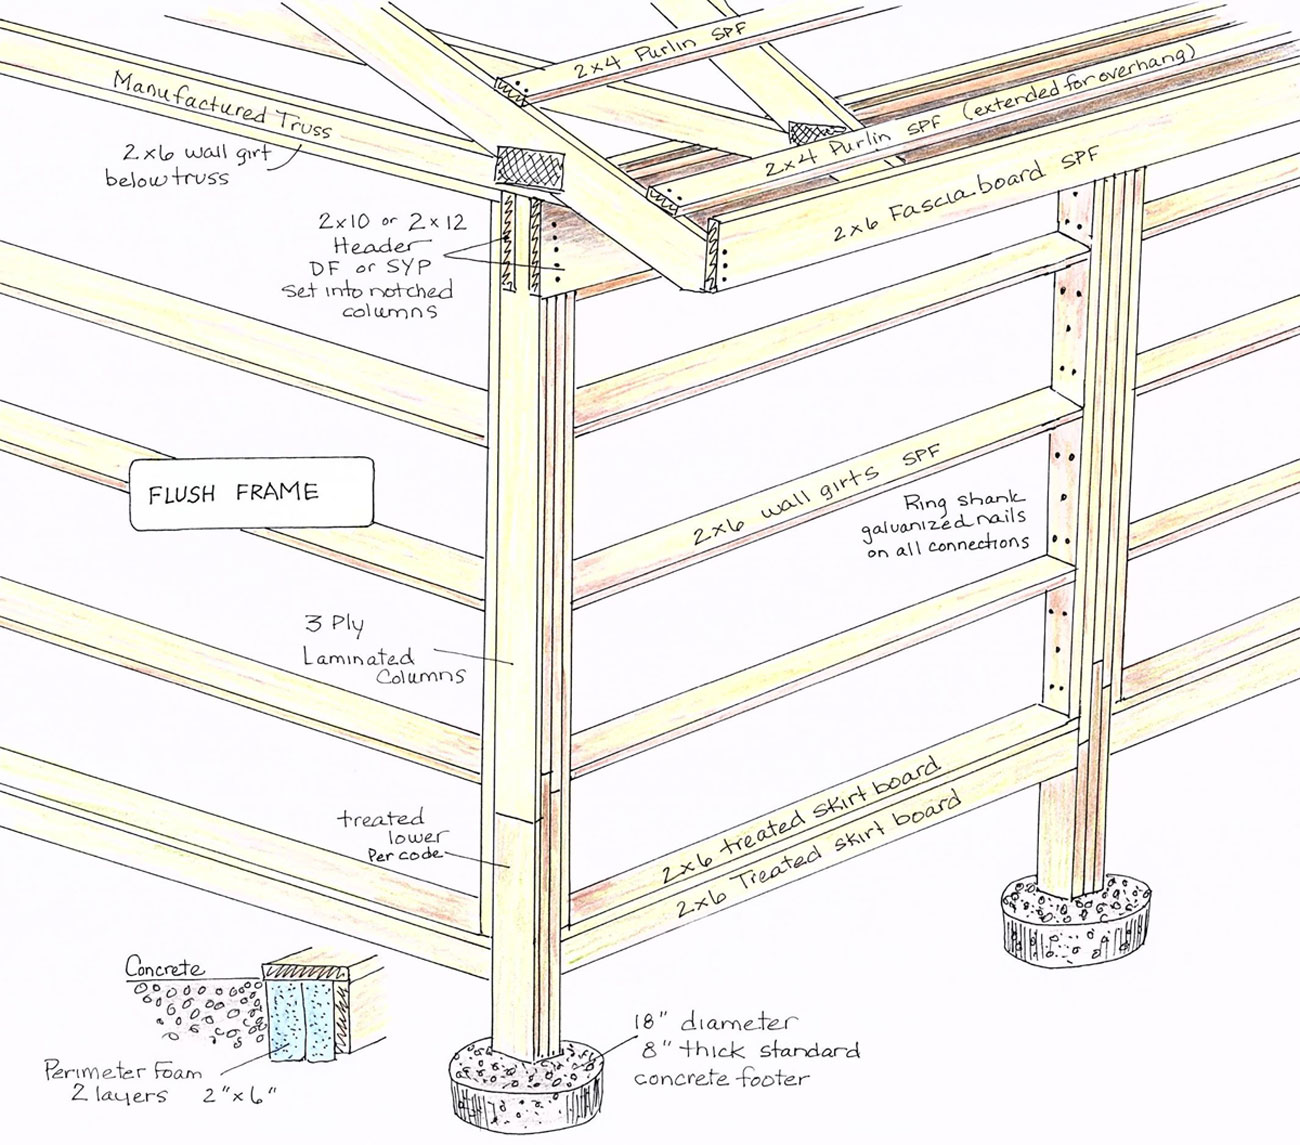 2x4 Purlin SPF
2x4 Purlin SPF (extended for overhang)
Manufactured Truss
2x6 wall girt
below truss
2x6 Fascia board SPF
2x10 or 2x12
Header
DF or SYP
set into notched
columns
FLUSH FRAME
2x6 wall girts SPF
Ring shank
galvanized nails
on all connections
3 Ply
Laminated
Columns
treated
lower
Per code
2x6 treated skirt board
2x6 Treated skirt board
Concrete
Perimeter Foam
2 layers 2"x6"
18" diameter
8" thick standard
concrete footer